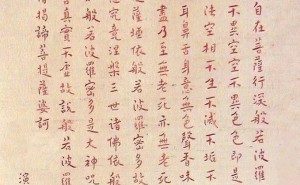 自在菩薩行深般若波羅
不異空空不異色色即是
法空相不生不滅不垢不
耳鼻舌身意無色聲香味
盡乃至無老死亦無老死
薩埵依般若波羅密多故
究竟涅槃三世諸佛依般
般若波羅密多是大神咒
真實不虛故說般若波羅
僧揭諦菩提薩婆訶
演